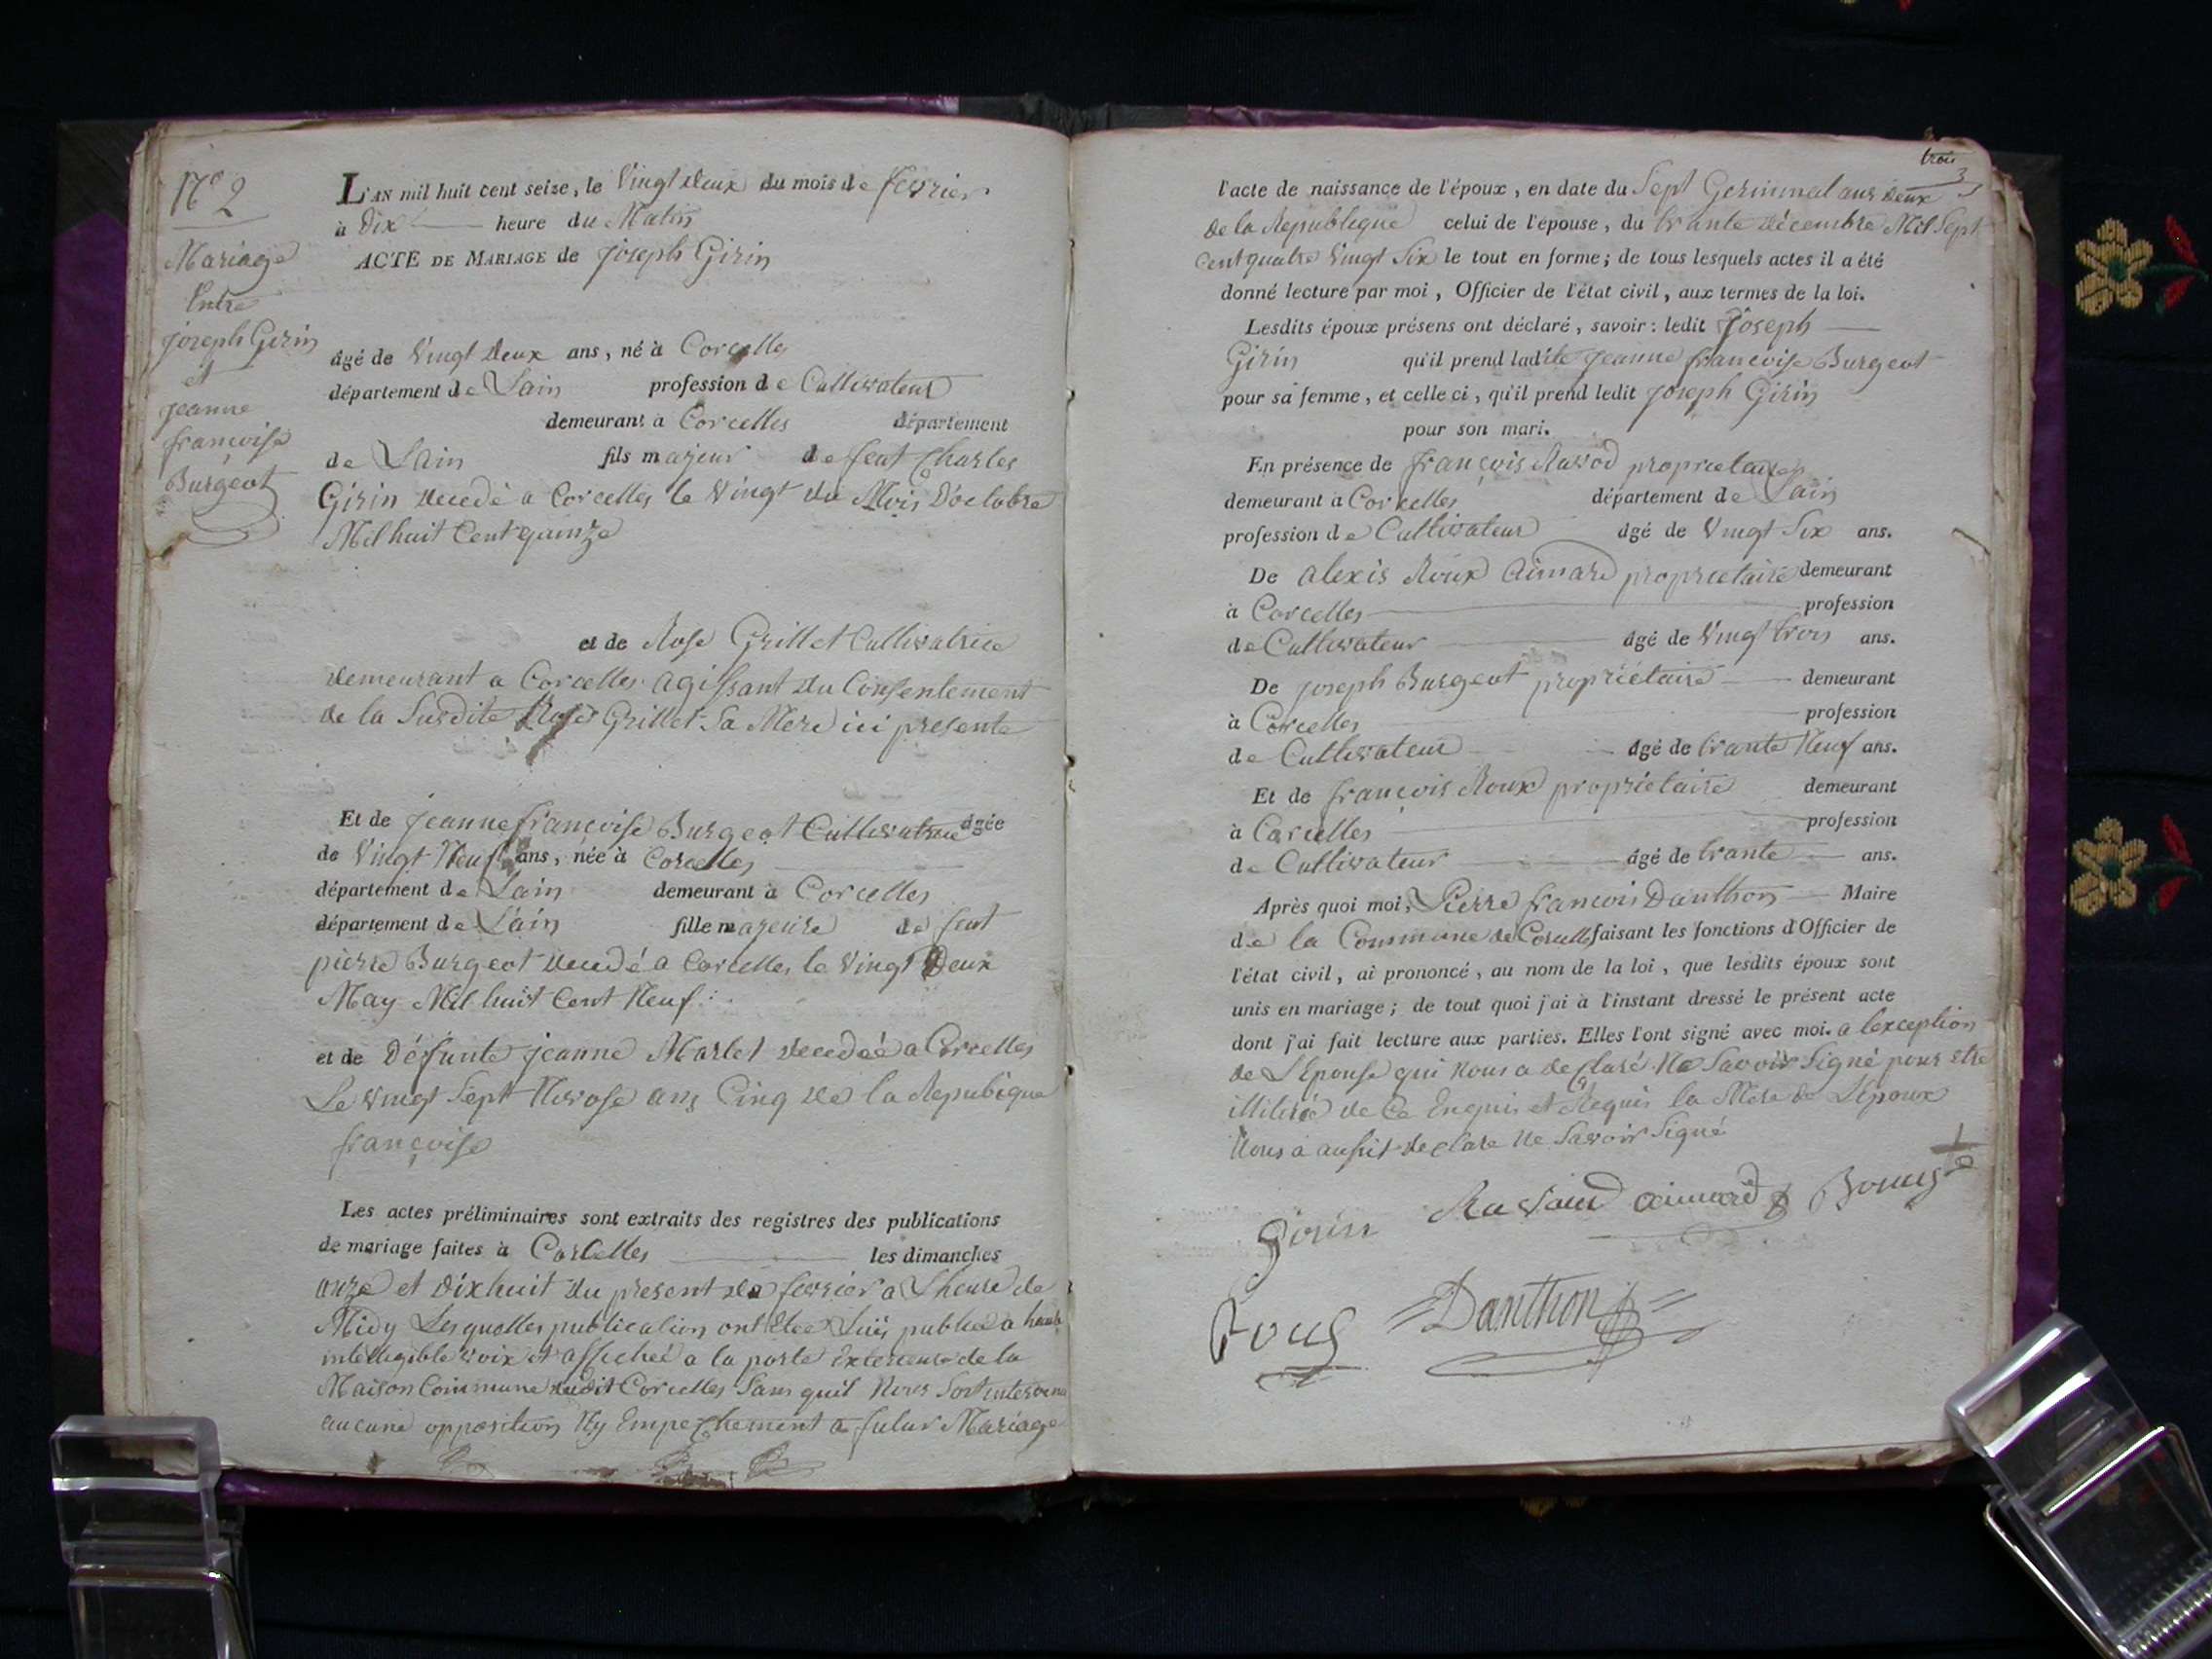 N.o 2
Mariage
Entre
joseph Girin
et
jeanne
françoise
Burgeot
L'AN mil huit cent seize, le Vingt deux du mois de fevrier
à Dix heure du Matin
ACTE DE MARIAGE de joseph Girin
âgé de Vingt deux ans, né à Corcelles
département de Lain profession de Cultivateur
demeurant à Corcelles département
de Lain fils majeur de feut Charles
Girin decedé a Corcelles le Vingt du Mois D'octobre
Mil huit Cent quinze
et de Rose Grillet Cultivatrice
demeurant a Corcelles agissant du Consentement
de la Susdite Rose Grillet Sa Mere ici presente
Et de jeanne françoise Burgeot Cultivatrice âgée
de Vingt Neuf ans, née à Corcelles
département de Lain demeurant à Corcelles
département de L'ain fille majeure de feut
pierre Burgeot decedé a Corcelles le Vingt Deux
May Mil huit Cent Neuf
et de Deffunte jeanne Marlet decedeé a Corcelles
Le vingt Sept Nivose ans Cinq de la Repubique
françoise
Les actes préliminaires sont extraits des registres des publications
de mariage faites à Corcelles les dimanches
onze et dixhuit du present de fevrier a Lheure de
Midy Lesquelles publication ont été Luis publieé a haute
intelligible voix et affichée a la porte Exterieure de la
Maison Commune dudit Corcelles Sans quil Nous Soit intervenu
aucune opposition Ny Empechement a futur Mariage
trois
3
l'acte de naissance de l'époux, en date du Sept Germinal ans deux
de la Republique celui de l'épouse, du trante décembre Mil Sept
Cent quatre Vingt Six le tout en forme; de tous lesquels actes il a été
donné lecture par moi, Officier de l'état civil, aux termes de la loi.
Lesdits époux présens ont déclaré, savoir: ledit Joseph
Girin qu'il prend ladite Jeanne françoise Burgeot
pour sa femme, et celle ci, qu'il prend ledit joseph Girin
pour son mari.
En présence de françois Ravod proprietaires
demeurant à Corcelles département de Lain
profession de Cultivateur âgé de Vingt Six ans.
De alexis Roux Aimard proprietaire demeurant
à Corcelles profession
de Cultivateur âgé de Vingt trois ans.
De joseph Burgeot propriétaire demeurant
à Corcelles profession
de Cultivateur âgé de trante Neuf ans.
Et de françois Roux propriétaire demeurant
à Corcelles profession
de Cultivateur âgé de trante ans.
Après quoi moi, Pierre françois Danthon Maire
de la Commune de Corcelles faisant les fonctions d'Officier de
l'état civil, ai prononcé, au nom de la loi, que lesdits époux sont
unis en mariage; de tout quoi j'ai à l'instant dressé le présent acte
dont j'ai fait lecture aux parties. Elles l'ont signé avec moi. a lexception
de LEpouse qui Nous a declaré Ne Savoir Signé pour etre
illiteré de Ce Enquis et Requis la Mere de Lépoux
Nous a aussit declare Ne Savoir Signé
Girin Ravaud aimard
Roux Danthon